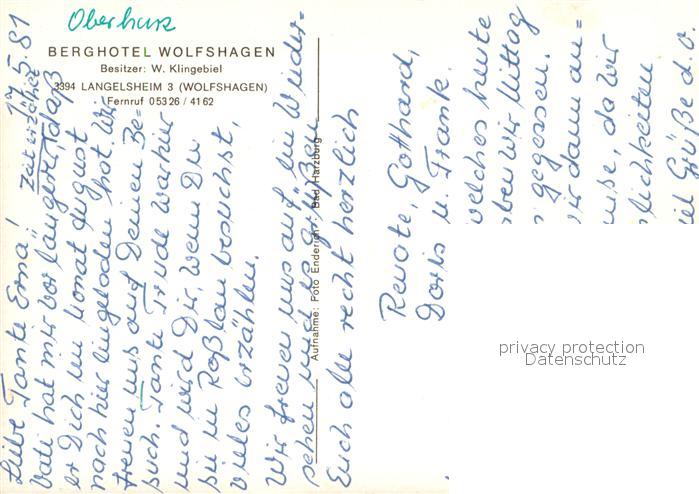 Oberharz
BERGHOTEL WOLFSHAGEN
Besitzer: W. Klingebiel
3394 LANGELSHEIM 3 (WOLFSHAGEN)
Fernruf 05326 / 4162
Aufnahme: Foto Enderich, Bad Harzburg
17.5.81
Liebe Tante Erna!
Vati hat mir vor längerer Zeit erzählt, daß
er Dich im Monat August
nach hier eingeladen hat. Wir
freuen uns auf Deinen Be=
such. Tante Trude war hier
und wird Dir, wenn Du
sie in Roßlau besuchst,
vieles erzählen.
Wir freuen uns auf ein Wieder-
sehen und es grüßen
Euch alle recht herzlich
Renate, Gotthard,
Doris u. Frank.
welches heute
ben wir Mittag
gegessen.
ir dann an=
use, da wir
lichkeiten
iel Grüße d. o.
privacy protection
Datenschutz